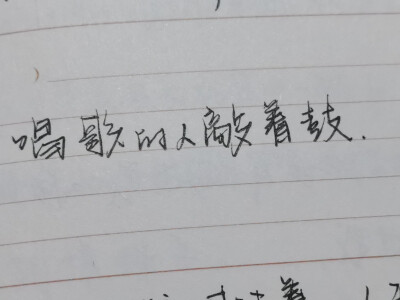 唱歌的人敲着鼓.